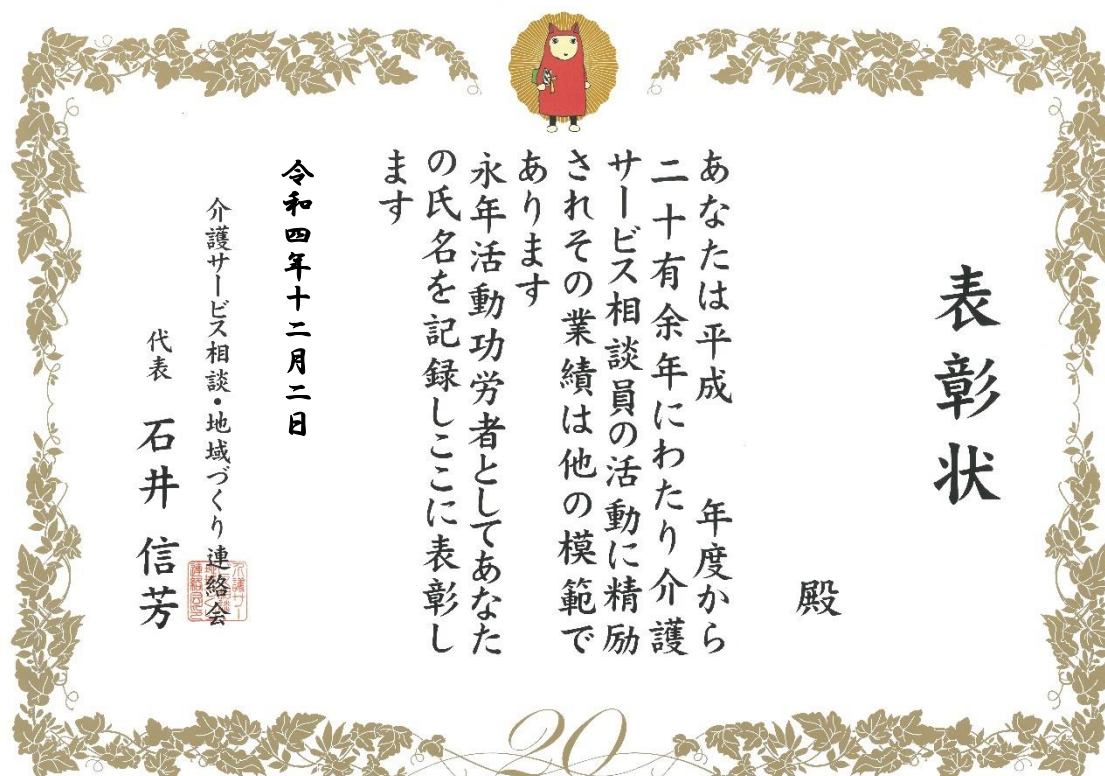 表彰状
殿
あなたは平成　　年度から
二十有余年にわたり介護
サービス相談員の活動に精励
されその業績は他の模範で
あります
永年活動功労者としてあなた
の氏名を記録しここに表彰し
ます
令和四年十二月二日
介護サービス相談・地域づくり連絡会
代表　石井　信芳
20